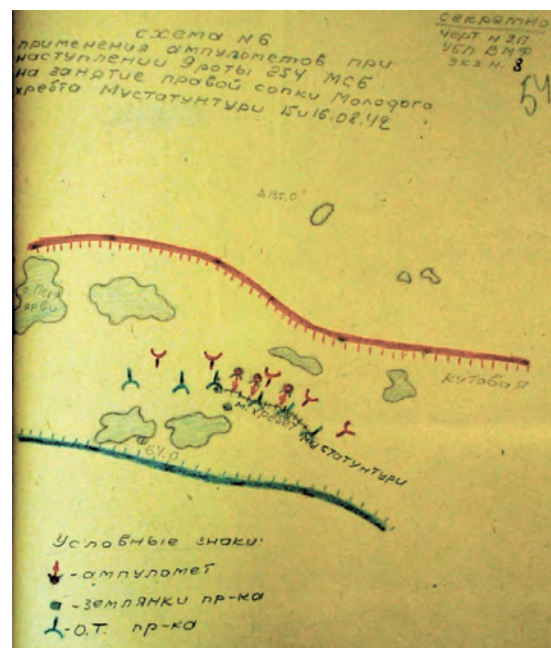 схема N6
применения ампулометов при
наступлении 9 роты 254 МСБ
на занятие правой сопки Молодого
хребта Мустатунтури 15 и 16.08.42
секретно
черт N
УБП ВМФ
экз N. 8
54
ярви
кутовая
м. хребет Мустатунтури
64.0
Условные знаки:
-ампуломет
-землянки пр-ка
-О.Т. пр-ка